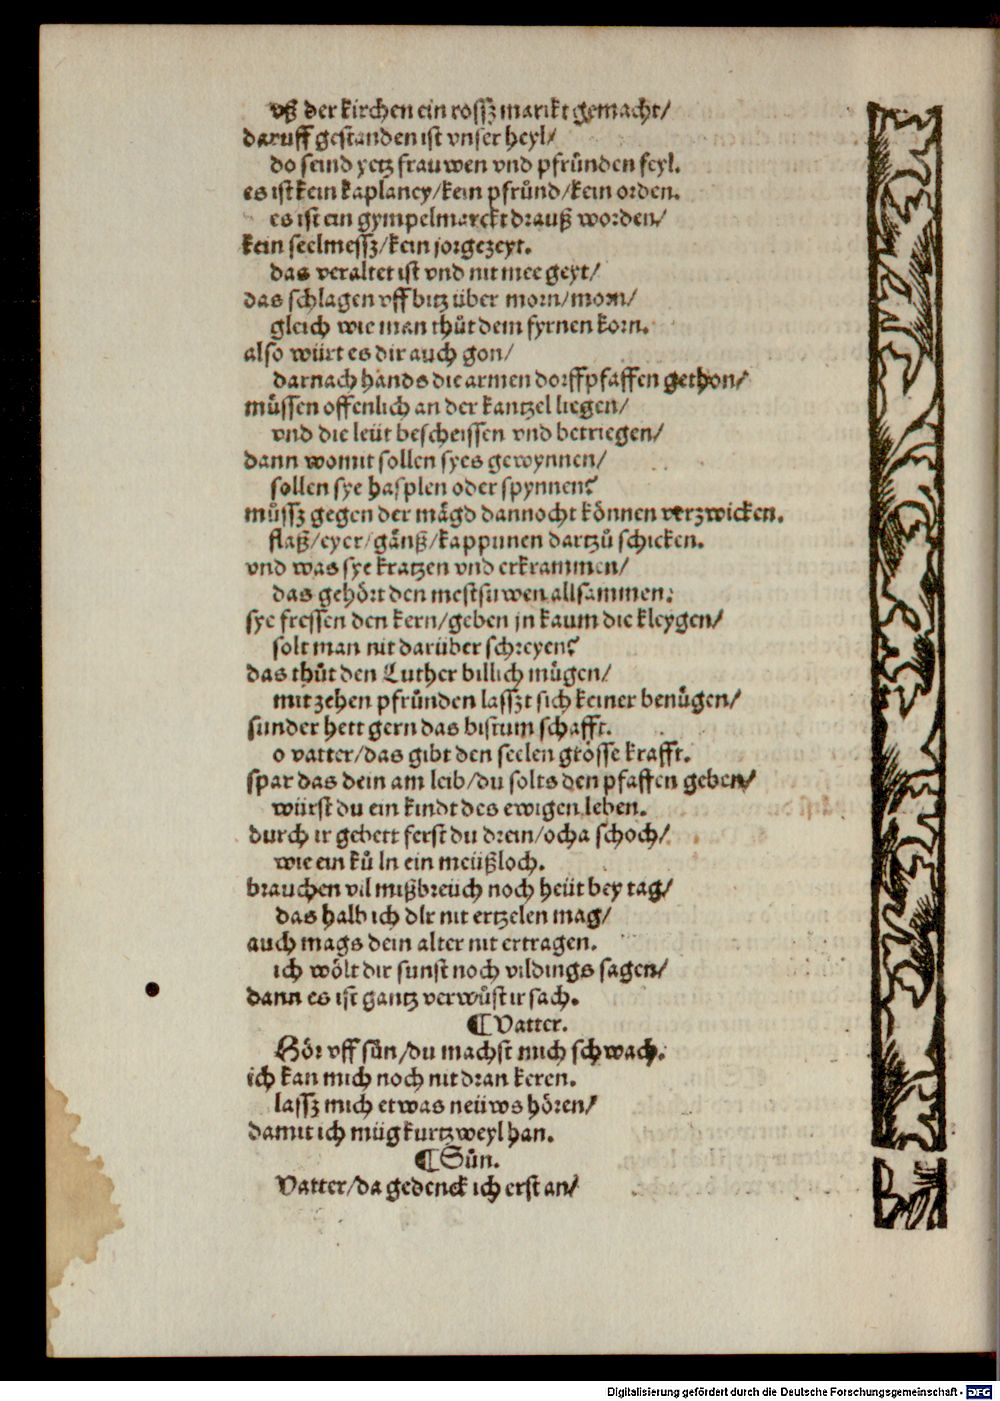 vß der kirchen ein rossz marckt gemacht/
daruff gestanden ist vnser heyl/
do seind yetz frauwen vnd pfründen feyl.
es ist kein kaplaney/kein pfründ/kein orden.
es ist ein gympelmarckt drauß worden/
kein seelmessz/kein jorgezeyt.
das veraltet ist vnd nit mee geyt/
das schlagen vff bitz über morn/morn/
gleich wie man thůt dem fyrnen korn.
also würt es dir auch gon/
darnach hands die armen dorffpfaffen gethon/
müssen offenlich an der kantzel liegen/
vnd die leüt bescheissen vnd betriegen/
dann womit sollen sye es gewynnen/
sollen sye hasplen oder spynnen?
müssz gegen der mägd dannocht können verzwicken.
flaß/eyer/gänß/kappunen dartzů schicken.
vnd was sye kratzen vnd erkrammen/
das gehört den mestsuwen allsammen:
sye fressen den kern/geben jn kaum die kleygen/
solt man nit darüber schreyen?
das thůt den Luther billich mügen/
mit zehen pfründen lasszt sich keiner benügen/
sunder hett gern das bistum schafft.
o vatter/das gibt den seelen grosse krafft.
spar das dein am leib/du solts den pfaffen geben/
würst du ein kindt des ewigen leben.
durch ir gebett ferst du drein/ocha schoch/
wie ein ků In ein meüßloch.
brauchen vil mißbreüch noch heüt bey tag/
das halb ich dIr nit ertzelen mag/
auch mags dein alter nit ertragen.
ich wölt dir sunst noch vil dings sagen/
dann es ist gantz verwüst ir sach.
¶Vatter.
Hör vff sůn/du machst mich schwach.
ich kan mich noch nit dran keren.
lassz mich etwas neüws hören/
damit ich müg kurtzweyl han.
¶Sůn.
Vatter/da gedenck ich erst an/
Digitalisierung gefördert durch die Deutsche Forschungsgemeinschaft - DFG